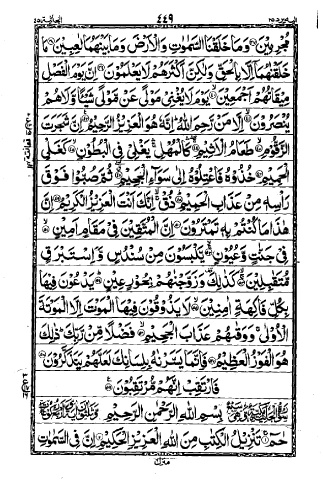 الیہ یرد ۲۵ ۴۴۹ الجاثیۃ ۴۵
مُجْرِمِيْنَ وَمَا خَلَقْنَا السَّمٰوٰتِ وَالْاَرْضَ وَمَا بَيْنَهُمَا لٰعِبِيْنَ مَا
خَلَقْنٰهُمَآ اِلَّا بِالْحَقِّ وَلٰكِنَّ اَكْثَرَهُمْ لَا يَعْلَمُوْنَ اِنَّ يَوْمَ الْفَصْلِ
مِيْقَاتُهُمْ اَجْمَعِيْنَ يَوْمَ لَا يُغْنِيْ مَوْلًى عَنْ مَّوْلًى شَيْـًٔا وَّلَا هُمْ
يُنْصَرُوْنَ اِلَّا مَنْ رَّحِمَ اللّٰهُ اِنَّهٗ هُوَ الْعَزِيْزُ الرَّحِيْمُ اِنَّ شَجَرَتَ
الزَّقُّوْمِ طَعَامُ الْاَثِيْمِ كَالْمُهْلِ يَغْلِيْ فِي الْبُطُوْنِ كَغَلْيِ
الْحَمِيْمِ خُذُوْهُ فَاعْتِلُوْهُ اِلٰى سَوَآءِ الْجَحِيْمِ ثُمَّ صُبُّوْا فَوْقَ
رَاْسِهٖ مِنْ عَذَابِ الْحَمِيْمِ ذُقْ اِنَّكَ اَنْتَ الْعَزِيْزُ الْكَرِيْمُ اِنَّ
هٰذَا مَا كُنْتُمْ بِهٖ تَمْتَرُوْنَ اِنَّ الْمُتَّقِيْنَ فِيْ مَقَامٍ اَمِيْنٍ
فِيْ جَنّٰتٍ وَّعُيُوْنٍ يَّلْبَسُوْنَ مِنْ سُنْدُسٍ وَّاِسْتَبْرَقٍ
مُّتَقٰبِلِيْنَ كَذٰلِكَ وَزَوَّجْنٰهُمْ بِحُوْرٍ عِيْنٍ يَدْعُوْنَ فِيْهَا
بِكُلِّ فَاكِهَةٍ اٰمِنِيْنَ لَا يَذُوْقُوْنَ فِيْهَا الْمَوْتَ اِلَّا الْمَوْتَةَ
الْاُوْلٰى وَوَقٰىهُمْ عَذَابَ الْجَحِيْمِ فَضْلًا مِّنْ رَّبِّكَ ذٰلِكَ
هُوَ الْفَوْزُ الْعَظِيْمُ فَاِنَّمَا يَسَّرْنٰهُ بِلِسَانِكَ لَعَلَّهُمْ يَتَذَكَّرُوْنَ
فَارْتَقِبْ اِنَّهُمْ مُّرْتَقِبُوْنَ
بِسْمِ اللّٰهِ الرَّحْمٰنِ الرَّحِيْمِ
حٰمٓ تَنْزِيْلُ الْكِتٰبِ مِنَ اللّٰهِ الْعَزِيْزِ الْحَكِيْمِ اِنَّ فِي السَّمٰوٰتِ
منزل